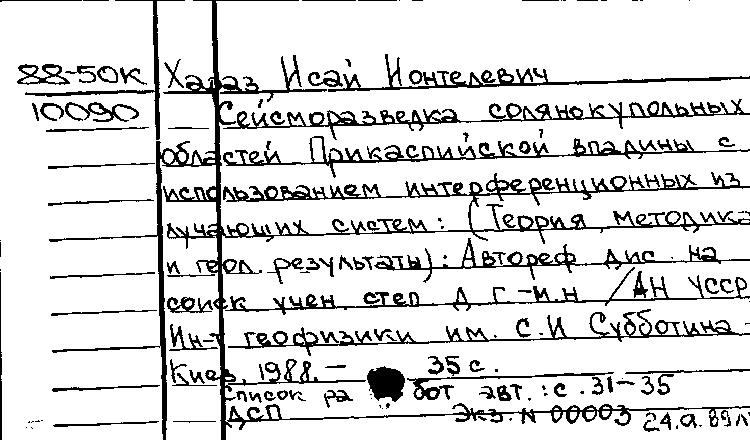 88-50К Хараз, Исай Ионтелевич
10090 Сейсморазведка солянокупольных
областей Прикаспийской впадины с
использованием интерференционных из
лучающих систем: (Теория, методика
и геол. результаты): Автореф дис. на
соиск учен. степ д. г.-м.н /АН УССР
Ин-т геофизики им. С.И Субботина -
Киев, 1988. — 35 с.
Список ра бот авт. : с. 31-35
ДСП Экз. N 00003